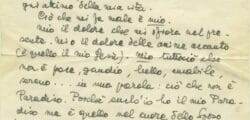 attimo della mia vita.
Ciò che mi fa male è mio.
mio il dolore che mi sfiora nel pre-
sente. Mio il dolore delle anime accanto
(è quello il mio Gesù). Mio tutto ciò che
non è pace, gaudio, bello, amabile,
sereno... in una parola: ciò che non è
Paradiso. Poiché anch'io ho il mio Para-
diso ma è quello nel cuore dello Sposo